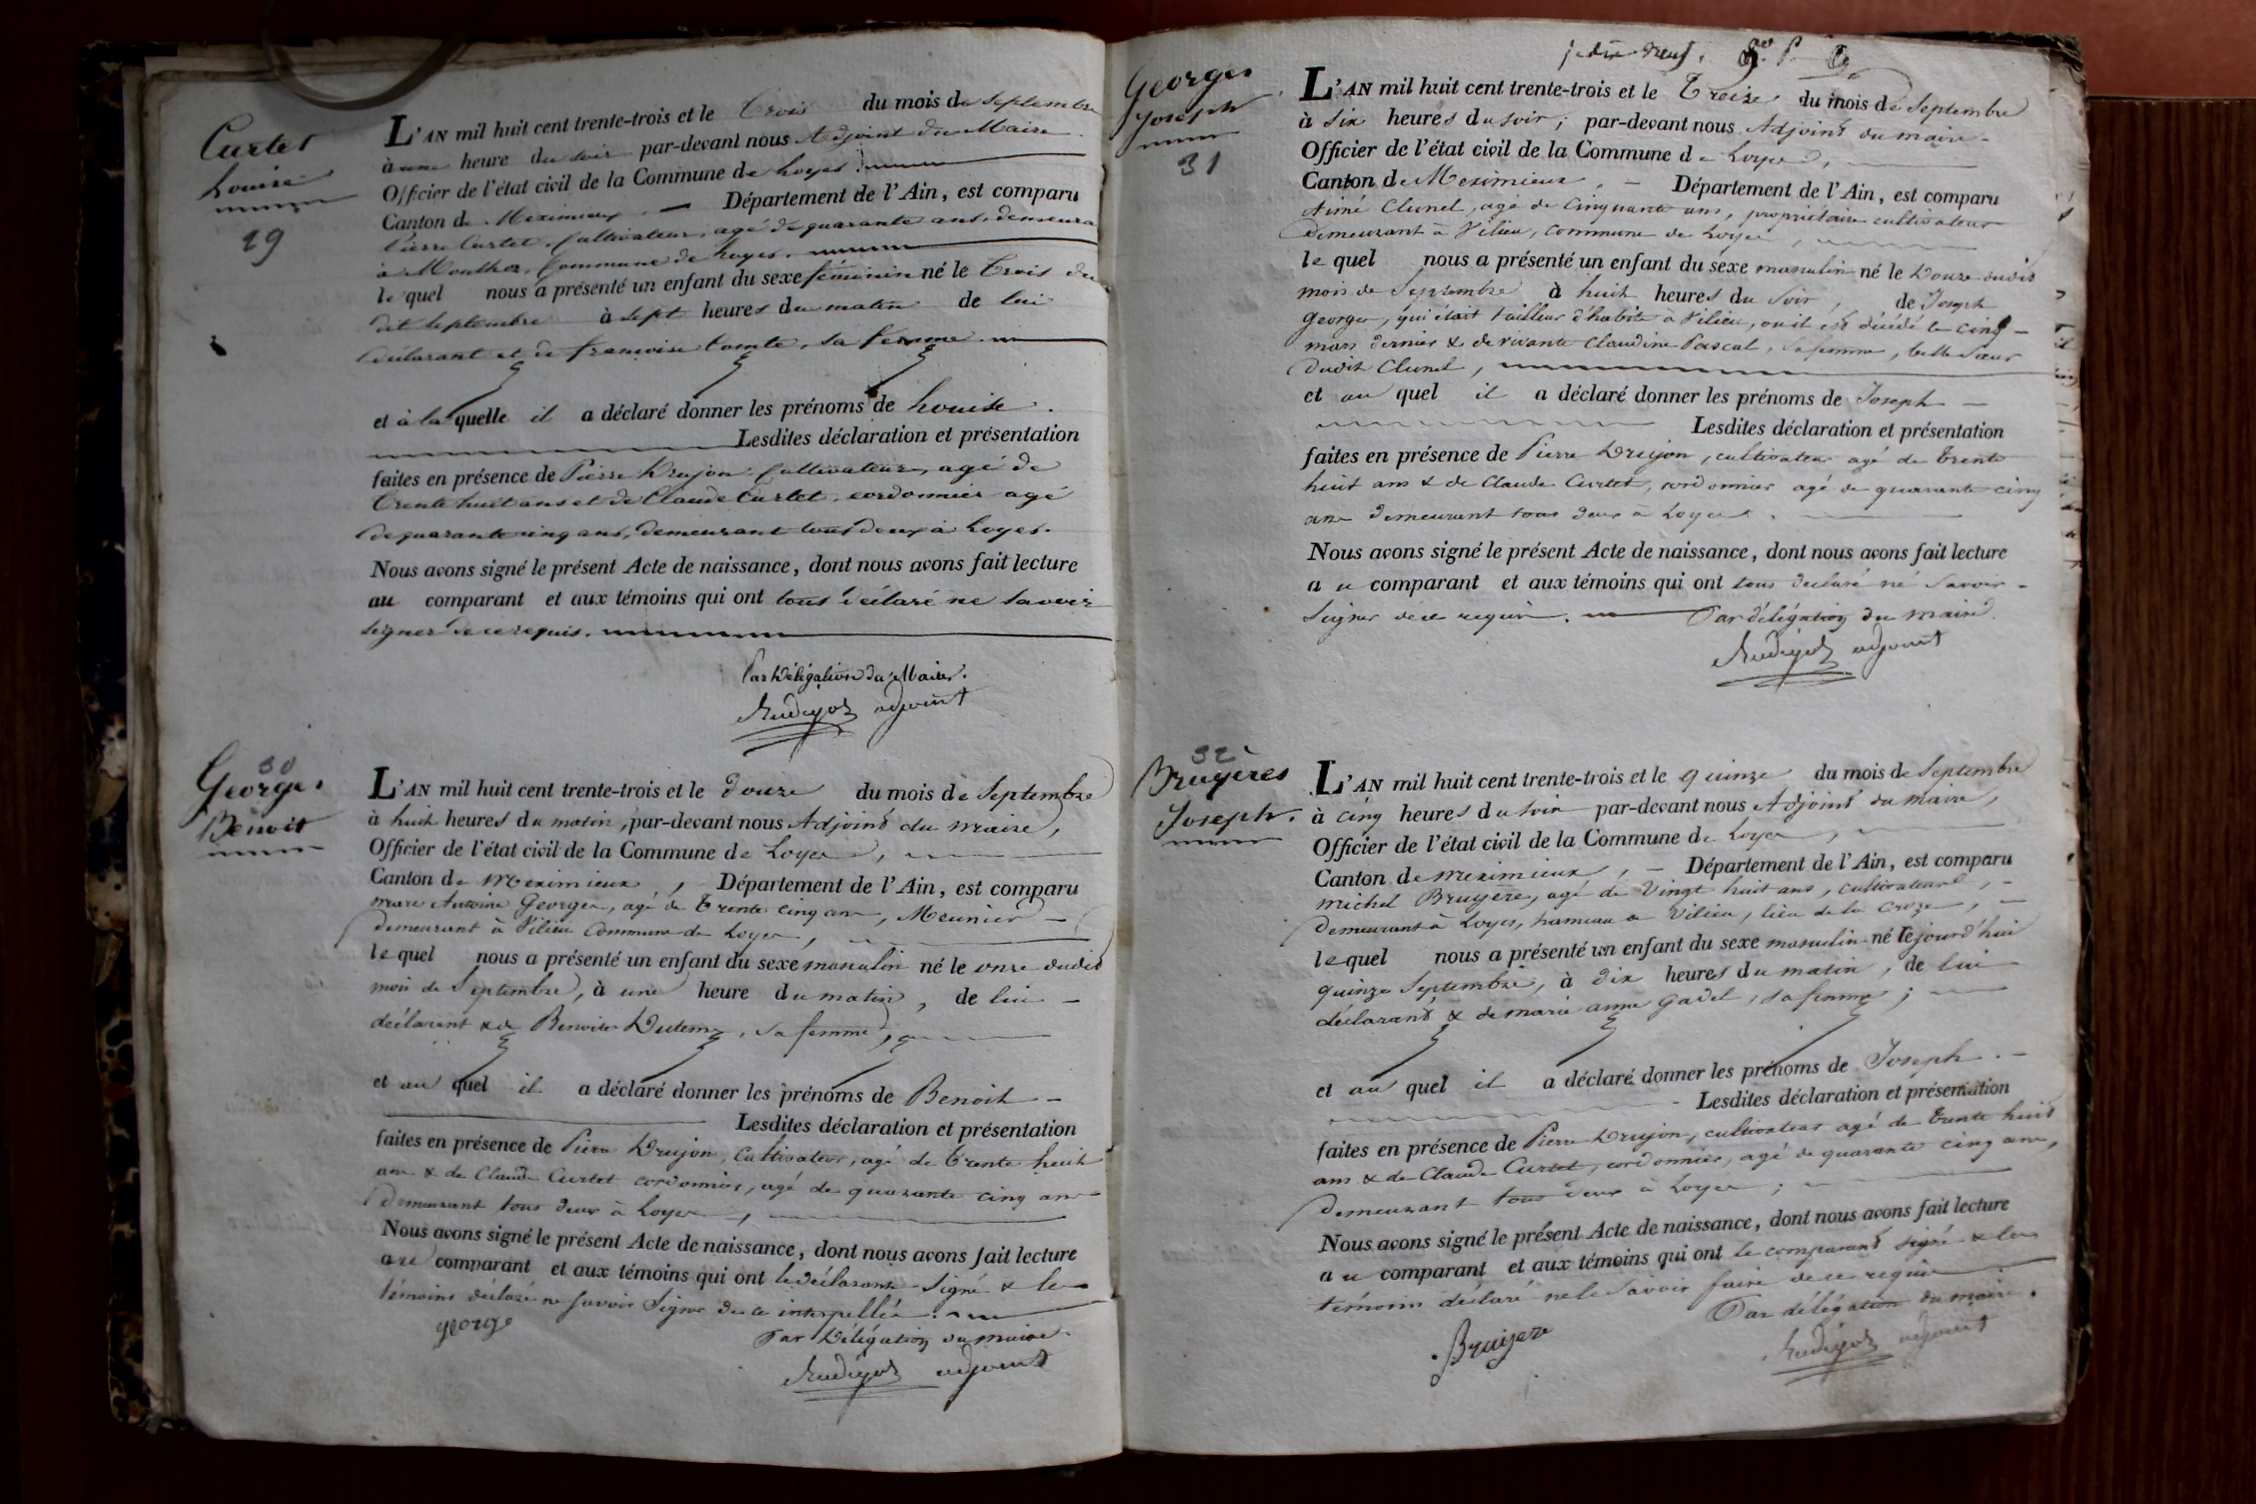 Curtet
Louise
29
L'AN mil huit cent trente-trois et le Trois du mois de Septembre
à une heure du soir par-devant nous Adjoint du Maire
Officier de l'état civil de la Commune de Loyes
Canton de Meximieux Département de l'Ain, est comparu
Pierre Curtet, Cultivateur, agé de quarante ans, demeurant
à Commune de Loyes.
lequel nous a présenté un enfant du sexe féminin né le Trois du
dit Septembre à sept heures du matin de lui
déclarant et de françoise Comte, sa femme
et à laquelle il a déclaré donner les prénoms de Louise.
Lesdites déclaration et présentation
faites en présence de Pierre Drujon Cultivateur, agé de
Trente huit ans et de Claude Curtet, cordonnier agé
de quarante cinq ans, demeurant tous deux à Loyes.
Nous avons signé le présent Acte de naissance, dont nous avons fait lecture
au comparant et aux témoins qui ont tous déclaré ne savoir
signer de ce requis.
Par Délégation du Maire.
adjoint
30
George
Benoit
L'AN mil huit cent trente-trois et le douze du mois de Septembre
à huit heures du matin, par-devant nous Adjoint du maire,
Officier de l'état civil de la Commune de Loyes,
Canton de Meximieux, Département de l'Ain, est comparu
marc Antoine George, agé de Trente cinq ans, Meunier
demeurant à Vilieu Commune de Loyes,
lequel nous a présenté un enfant du sexe masculin né le onze dudit
mois de Septembre, à une heure du matin, de lui
déclarant & de Benoite sa femme,
et au quel il a déclaré donner les prénoms de Benoit
Lesdites déclaration et présentation
faites en présence de Pierre Drujon, Cultivateur, agé de Trente huit
ans & de Claude Curtet cordonnier, agé de quarante cinq ans
demeurant tous deux à Loyes,
Nous avons signé le présent Acte de naissance, dont nous avons fait lecture
au comparant et aux témoins qui ont le déclarant signé & les
témoins déclaré ne savoir signer de ce interpellés.
george
Par Délégation du maire.
adjoint
Georges
Joseph
31
L'AN mil huit cent trente-trois et le Treize du mois de Septembre
à six heures du soir; par-devant nous Adjoint du maire
Officier de l'état civil de la Commune de Loyes,
Canton de Meximieux, Département de l'Ain, est comparu
Aimé Clunel, agé de Cinquante ans, propriétaire cultivateur
demeurant à Vilieu, commune de Loyes,
lequel nous a présenté un enfant du sexe masculin né le Douze dudit
mois de Septembre à huit heures du soir, de Joseph
George, qui était tailleur d'habits à Vilieu, où il est décédé le cinq
mars dernier & de vivante Claudine Pascal, sa femme, belle soeur
dudit Clunel,
et au quel il a déclaré donner les prénoms de Joseph
Lesdites déclaration et présentation
faites en présence de Pierre Drujon, cultivateur agé de Trente
huit ans & de Claude Curtet, cordonnier agé de quarante cinq
ans demeurant tous deux à Loyes.
Nous avons signé le présent Acte de naissance, dont nous avons fait lecture
au comparant et aux témoins qui ont tous déclaré ne savoir
signer de ce requis. Par délégation du maire
adjoint
32
Bruyères
Joseph.
L'AN mil huit cent trente-trois et le quinze du mois de Septembre
à cinq heures du soir par-devant nous Adjoint du maire,
Officier de l'état civil de la Commune de Loyes,
Canton de meximieux, Département de l'Ain, est comparu
michel Bruyère, agé de Vingt huit ans, cultivateur,
demeurant à Loyes, hameau de Vilieu, lieu de la Croze,
lequel nous a présenté un enfant du sexe masculin né lejourd'hui
quinze Septembre, à dix heures du matin, de lui
déclarant & de marie anne Gadel, sa femme;
et au quel il a déclaré donner les prénoms de Joseph.
Lesdites déclaration et présentation
faites en présence de Pierre Drujon, cultivateur agé de trente huit
ans & de Claude Curtet, cordonnier, agé de quarante cinq ans,
demeurant tous deux à Loyes;
Nous avons signé le présent Acte de naissance, dont nous avons fait lecture
au comparant et aux témoins qui ont le comparant signé & les
témoins déclaré ne le savoir faire de ce requis
Par délégation du maire.
Bruyere
adjoint